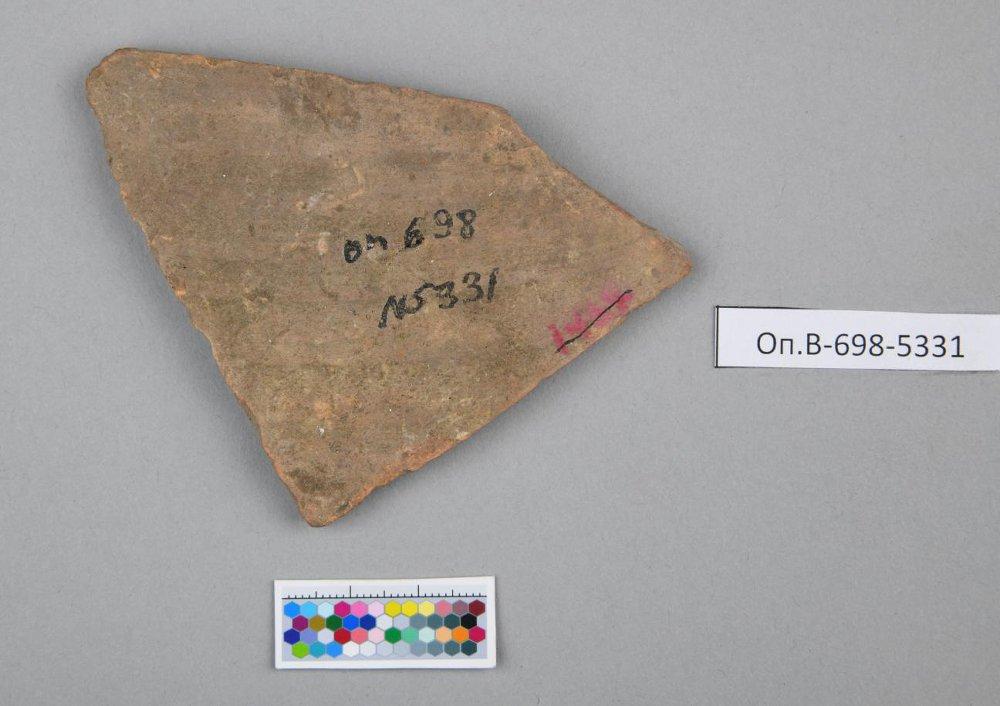 оп 698
№5331
Оп.В-698-5331